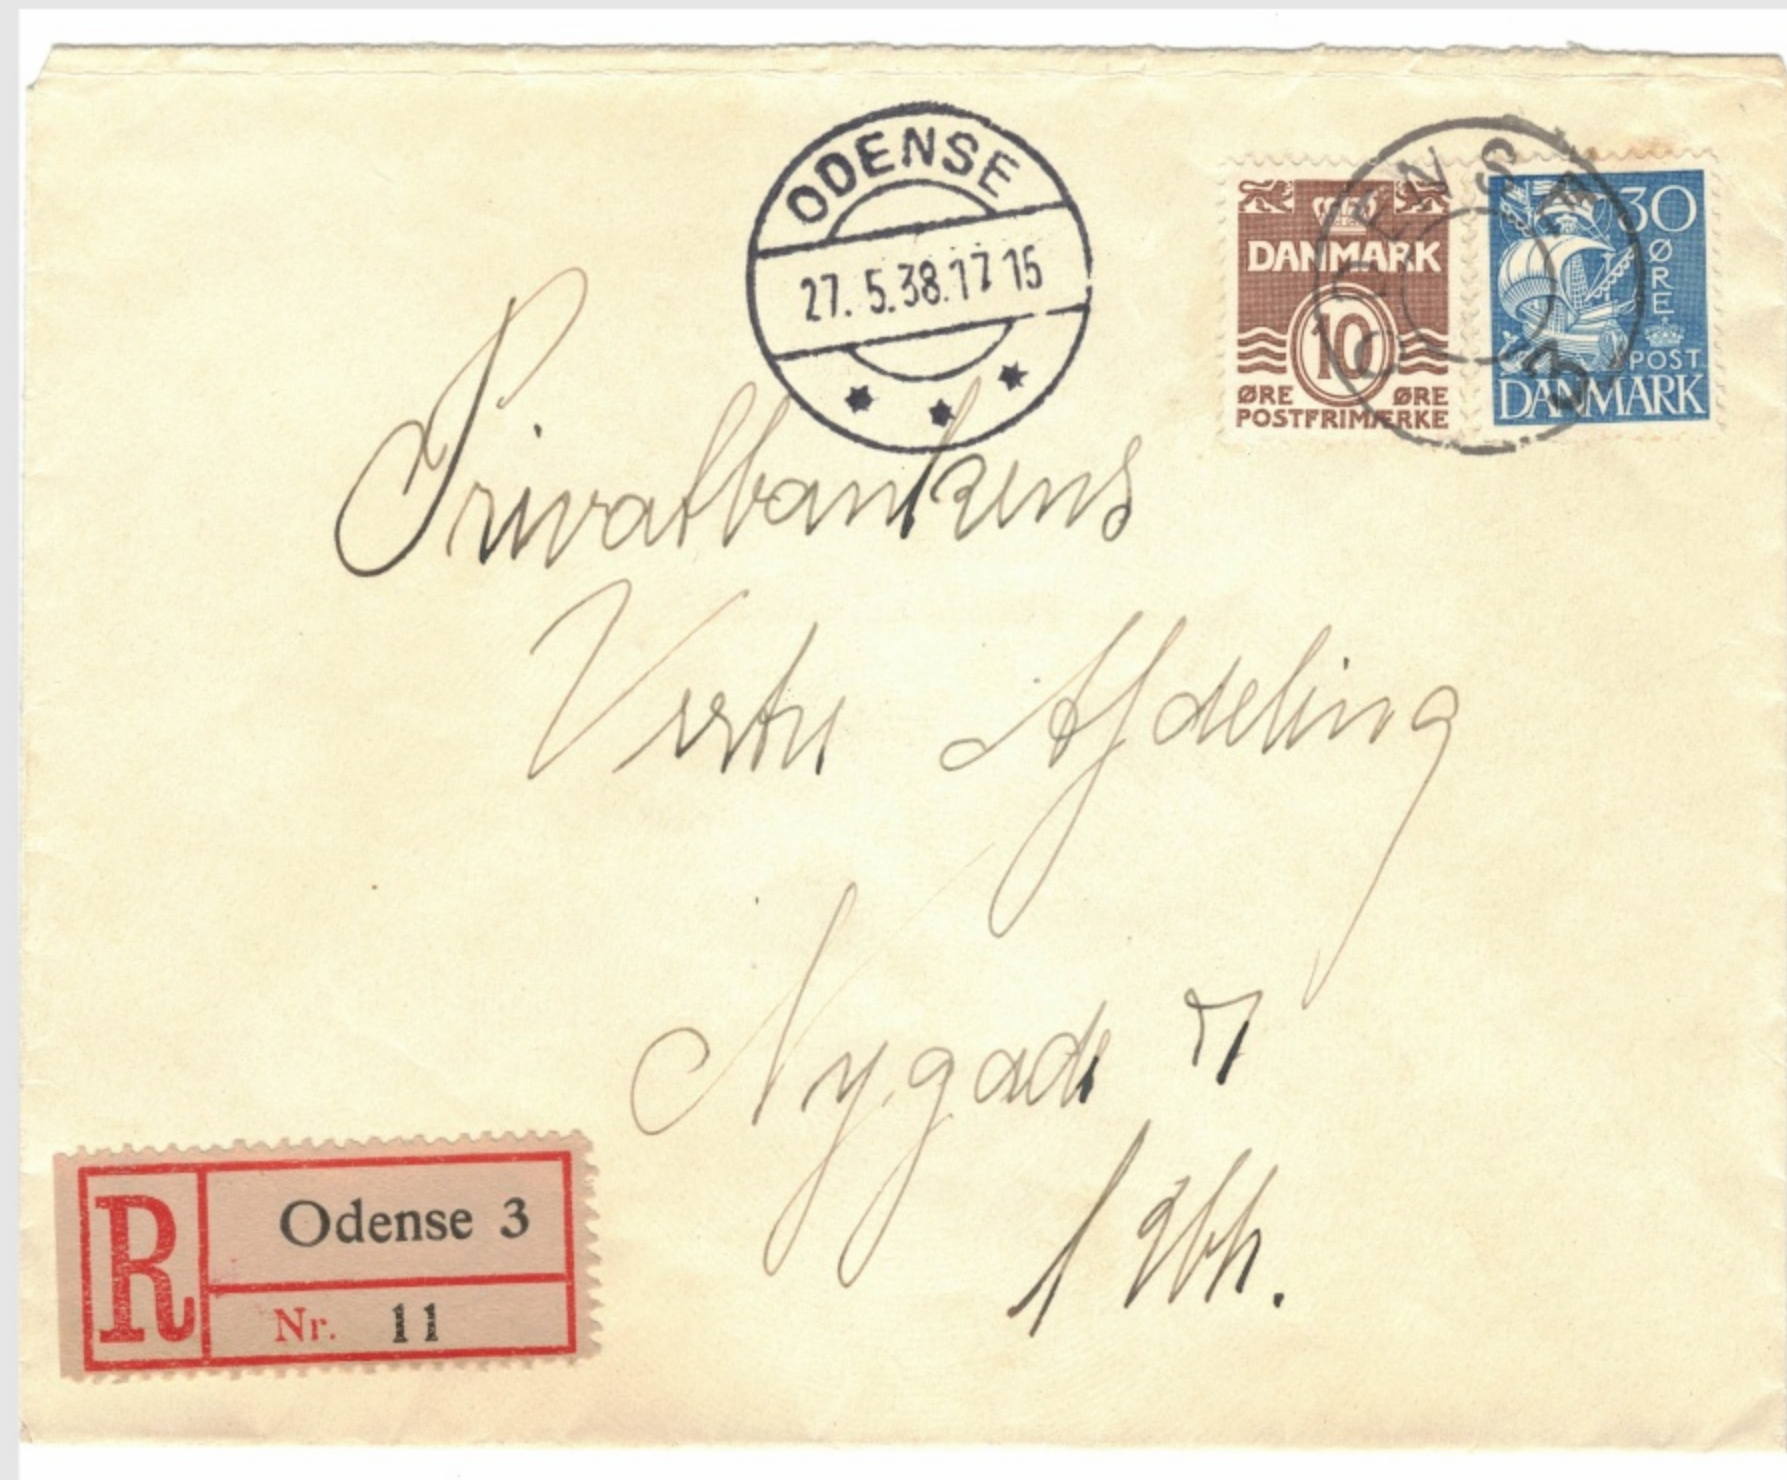 ODENSE
27.5.38.17 15
DANMARK
10
ØRE ØRE
POSTFRIMÆRKE
30
ØRE
POST
DANMARK
ODENSE
3
Privatbankens
Vexler Afdeling
Nygade 7
1 Kbh.
R
Odense 3
Nr. 11